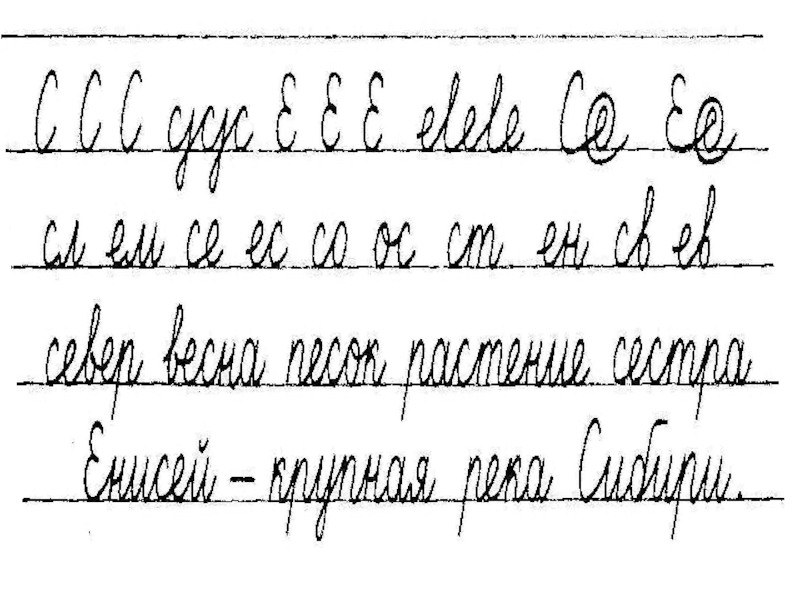 С С С дсдс Е Е Е еlеlе С@ Е@
сл ем се ес со ос ст ен св ев
север весна песок растение сестра
Енисей – крупная река Сибири.